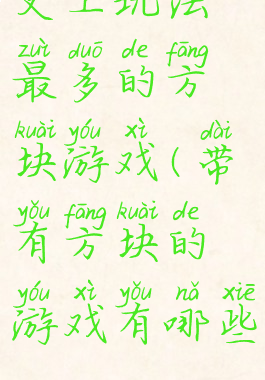 史上玩法
zuì duō de fāng
最多的方
kuài yóu xì dài
块游戏(带
yǒu fāng kuài de
有方块的
yóu xì yǒu nǎ xiē
游戏有哪些